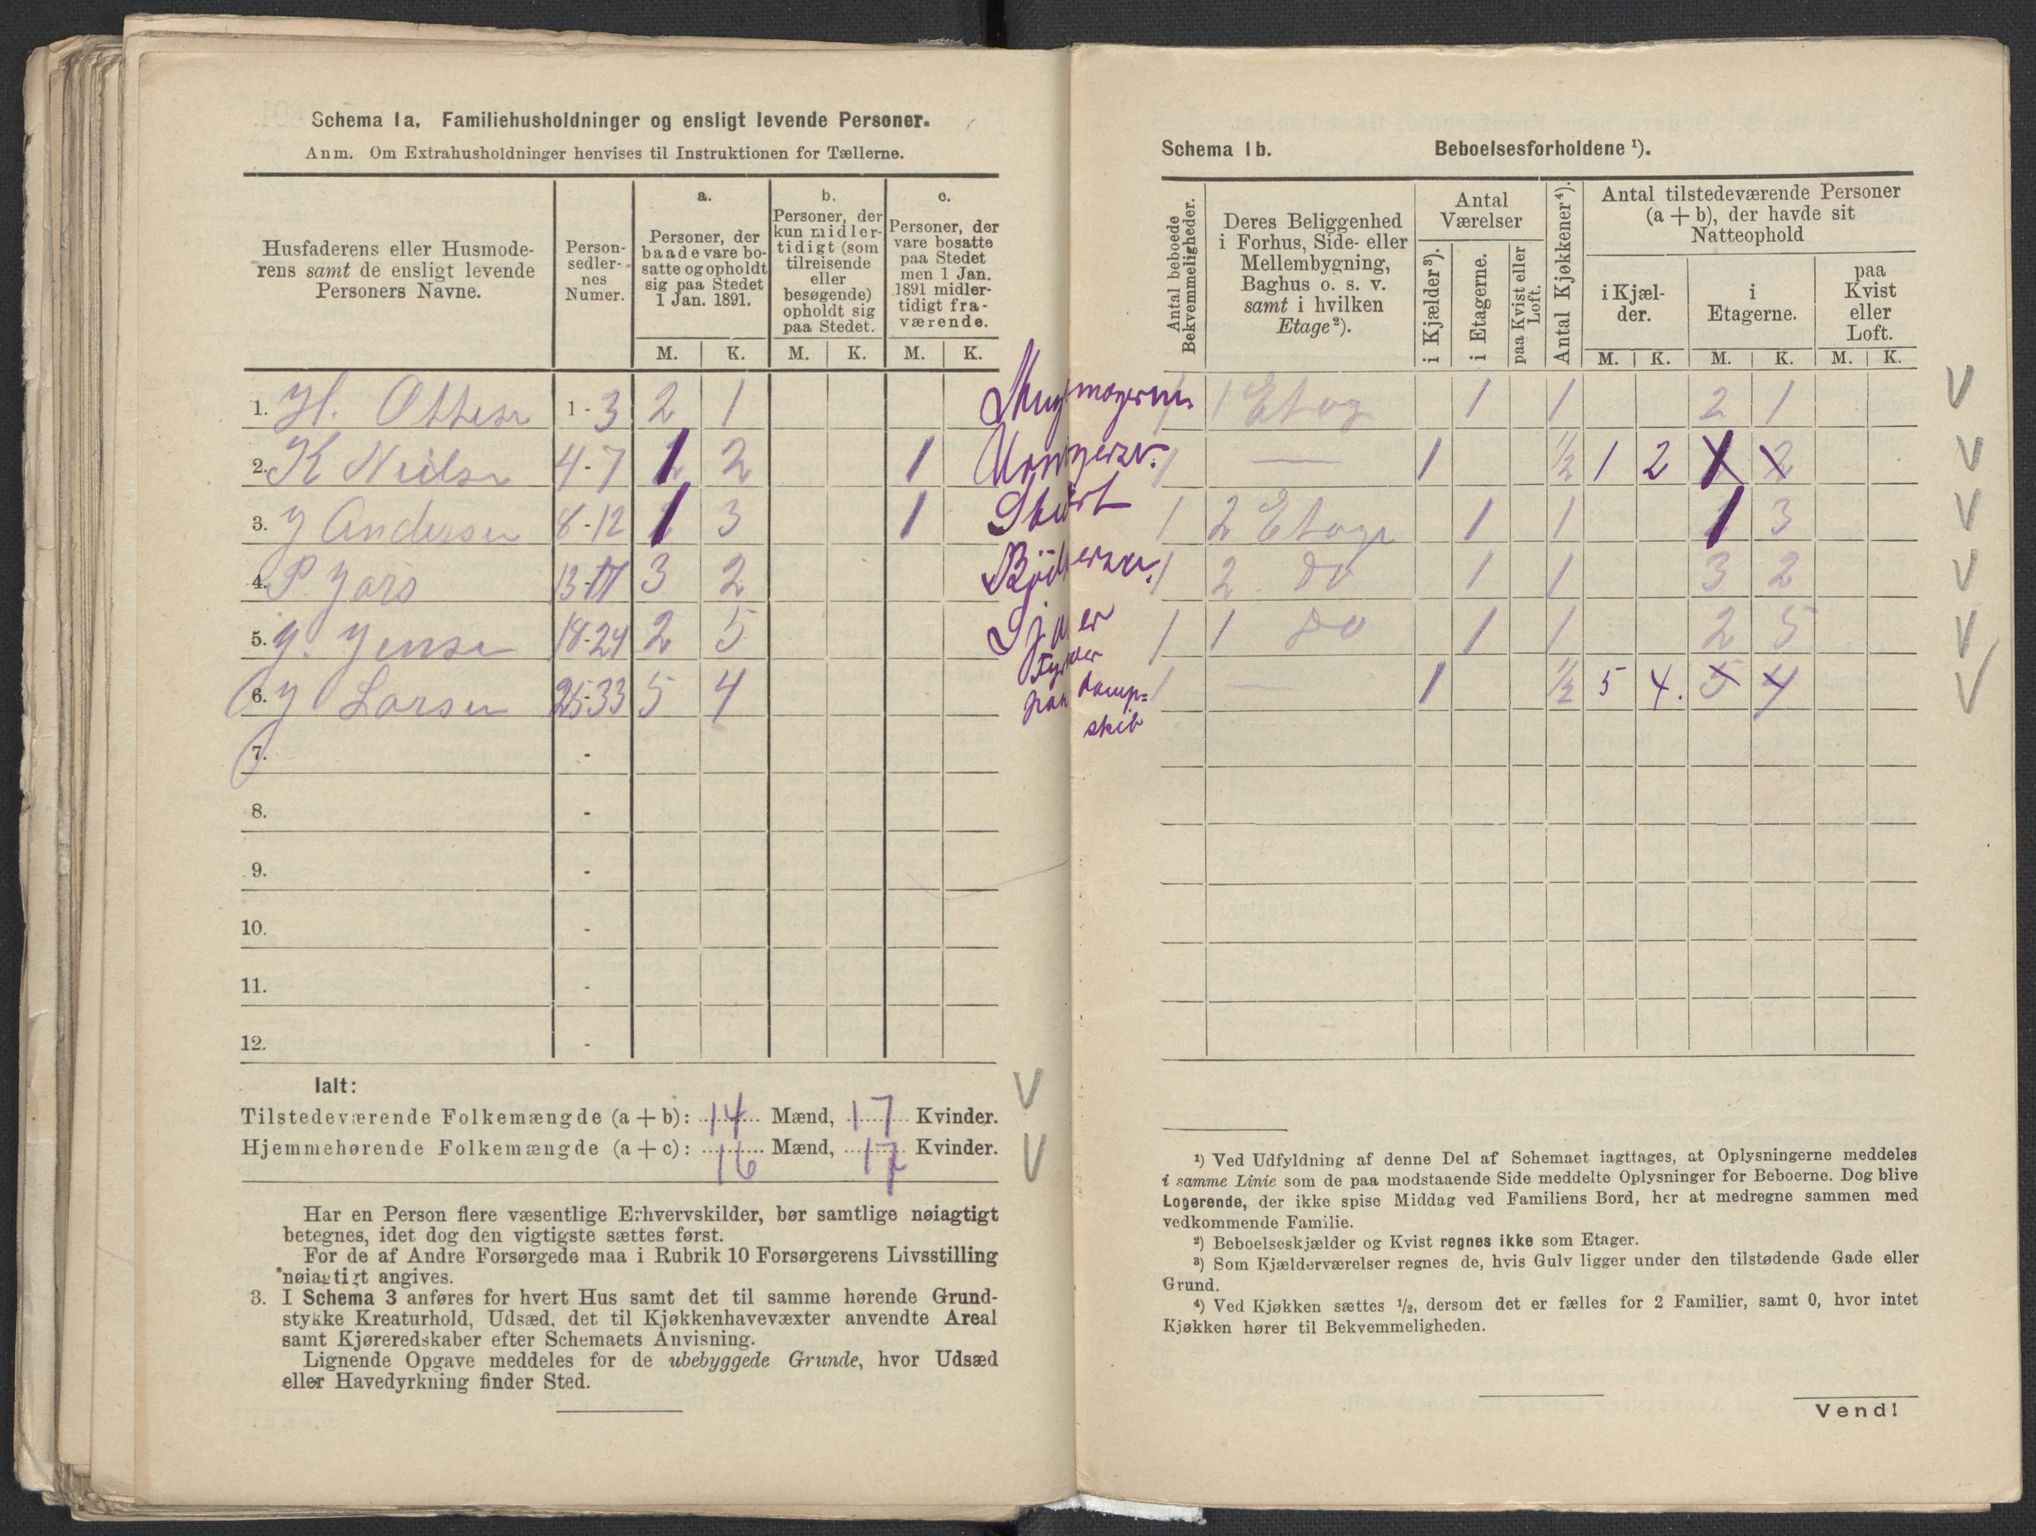 Schema 1a. Familiehusholdninger og ensligt levende Personer.
Anm. Om Extrahusholdninger henvises til Instruktionen for Tællerne.
Husfaderens eller Husmode-
rens samt de ensligt levende
Personers Navne.
Person-
sedler-
nes
Numer.
a.
Personer, der
baade vare bo-
satte og opholdt
sig paa Stedet
1 Jan. 1891.
b.
Personer, der
kun midler-
tidigt (som
tilreisende
eller
besøgende)
opholdt sig
paa Stedet.
c.
Personer, der
vare bosatte
paa Stedet
men 1 Jan.
1891 midler-
tidigt fra-
værende.
M. K. M. K. M. K.
1. H. Ottesen 1-3 2 1
2. K Neilsen 4-7 1 2 1
3. J Andersen 8-12 1 3 1
4. P Jars 13-17 3 2
5. J. Jensen 18-24 2 5
6. J Larsen 25-33 5 4
7. -
8. -
9. -
10. -
11. -
12. -
Ialt:
Tilstedeværende Folkemængde (a + b): 14 Mænd, 17 Kvinder.
Hjemmehørende Folkemængde (a + c): 16 Mænd, 17 Kvinder.
Har en Person flere væsentlige Erhvervskilder, bør samtlige nøiagtigt
betegnes, idet dog den vigtigste sættes først.
For de af Andre Forsørgede maa i Rubrik 10 Forsørgerens Livsstilling
nøiagtigt angives.
3. I Schema 3 anføres for hvert Hus samt det til samme hørende Grund-
stykke Kreaturhold, Udsæd, det til Kjøkkenhavevæxter anvendte Areal
samt Kjøreredskaber efter Schemaets Anvisning.
Lignende Opgave meddeles for de ubebyggede Grunde, hvor Udsæd
eller Havedyrkning finder Sted.
Schema 1b. Beboelsesforholdene ¹).
Antal beboede
Bekvemmeligheder.
Deres Beliggenhed
i Forhus, Side- eller
Mellembygning,
Baghus o. s. v.
samt i hvilken
Etage ²).
Antal
Værelser
i Kjælder ³).
i Etagerne.
paa Kvist eller
Loft.
Antal Kjøkkener ⁴).
Antal tilstedeværende Personer
(a + b), der havde sit
Natteophold
i Kjæl-
der.
i
Etagerne.
paa
Kvist
eller
Loft.
M. K. M. K. M. K.
1 1 Etag 1 1 2 1
1 — 1 ½ 1 2 1 2
1 2 Etage 1 1 1 3
1 2 do 1 1 3 2
1 1 do 1 1 2 5
dampskib
1 — 1 ½ 5 4. 5 4
¹) Ved Udfyldning af denne Del af Schemaet iagttages, at Oplysningerne meddeles
i samme Linie som de paa modstaaende Side meddelte Oplysninger for Beboerne. Dog blive
Logerende, der ikke spise Middag ved Familiens Bord, her at medregne sammen med
vedkommende Familie.
²) Beboelseskjælder og Kvist regnes ikke som Etager.
³) Som Kjælderværelser regnes de, hvis Gulv ligger under den tilstødende Gade eller
Grund.
⁴) Ved Kjøkken sættes ½, dersom det er fælles for 2 Familier, samt 0, hvor intet
Kjøkken hører til Bekvemmeligheden.
Vend!